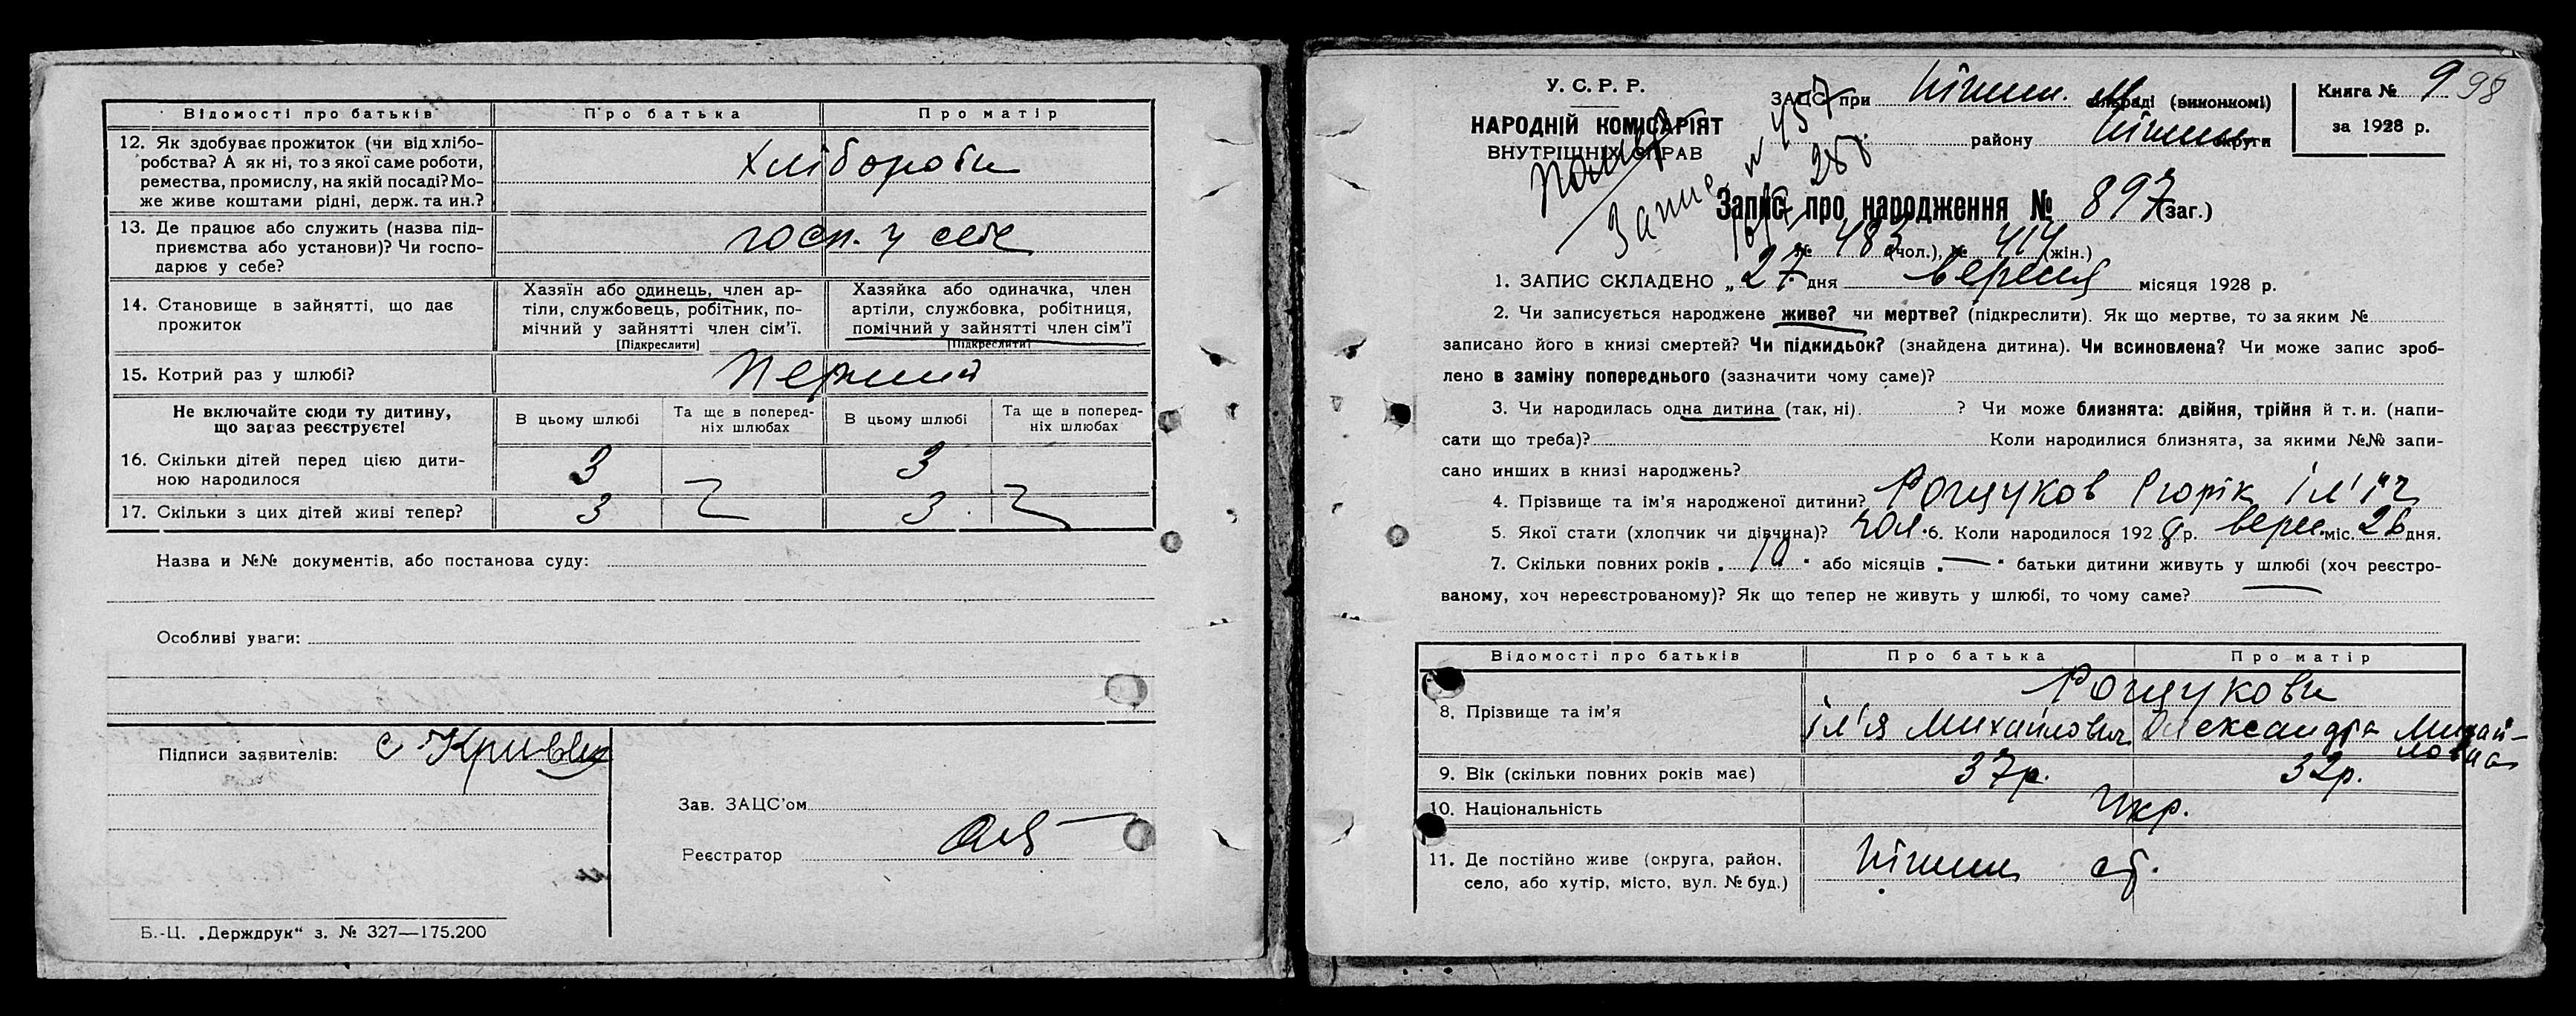 Відомості про батьків Про батька Про матір
12. Як здобуває прожиток (чи від хлібо-
робства? А як ні, то з якої саме роботи,
ремества, промислу, на якій посаді? Мо-
же живе коштами рідні, держ. та ин.?
Хлібороби
13. Де працює або служить (назва під-
приємства або установи)? Чи госпо-
дарює у себе?
госп. у себе
14. Становище в зайнятті, що дає
прожиток
Хазяїн або одинець, член ар-
тіли, службовець, робітник, по-
мічний у зайнятті член сім'ї.
[Підкреслити]
Хазяйка або одиначка, член
артіли, службовка, робітниця,
помічний у зайнятті член сім'ї
[Підкреслити]
15. Котрий раз у шлюбі? Перший
Не включайте сюди ту дитину,
що зараз реєструєте!
В цьому шлюбі Та ще в поперед-
ніх шлюбах В цьому шлюбі Та ще в поперед-
ніх шлюбах
16. Скільки дітей перед цією дити-
ною народилося 3 3
17. Скільки з цих дітей живі тепер? 3 3
Назва и №№ документів, або постанова суду:
Особливі уваги:
Підписи заявителів:
Зав. ЗАЦС'ом
Реєстратор
Б.-Ц. „Держдрук“ з. № 327—175.200
У. С. Р. Р.
НАРОДНІЙ КОМІСАРІЯТ
ВНУТРІШНІХ СПРАВ
ЗАЦС при Ніжин. сільраді (виконкомі)
району Ніжин округи
Книга № 9 98
за 1928 р.
Запис про народження № 897 (заг.)
№ 483 (чол.), № 414 (жін.)
1. ЗАПИС СКЛАДЕНО „27 дня вересня місяця 1928 р.
2. Чи записується народжене живе? чи мертве? (підкреслити). Як що мертве, то за яким №
записано його в книзі смертей? Чи підкидьок? (знайдена дитина). Чи всиновлена? Чи може запис зроб-
лено в заміну попереднього (зазначити чому саме)?
3. Чи народилась одна дитина (так, ні). ? Чи може близнята: двійня, трійня й т. и. (напи-
сати що треба)? Коли народилися близнята, за якими №№ запи-
сано инших в книзі народжень?
4. Прізвище та ім'я народженої дитини? Рощуков Ігорік Іл'їч
5. Якої стати (хлопчик чи дівчина)? чол. 6. Коли народилося 1928 р. верес. міс. 26 дня.
7. Скільки повних років „ 10 “ або місяців „ — “ батьки дитини живуть у шлюбі (хоч реєстро-
ваному, хоч нереєстрованому)? Як що тепер не живуть у шлюбі, то чому саме? —
Відомості про батьків Про батька Про матір
8. Прізвище та ім'я
Рощукови
Іл'я Михайлович Олександра Михай-
ловна
9. Вік (скільки повних років має) 37 р. 32 р.
10. Національність Укр.
11. Де постійно живе (округа, район,
село, або хутір, місто, вул. № буд.)
Ніжин